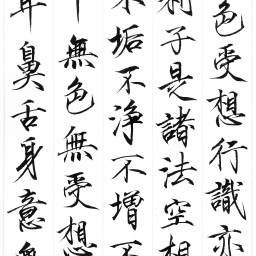 色受想行識亦
利子是諸法空相
不垢不淨不增不
中無色無受想
耳鼻舌身意